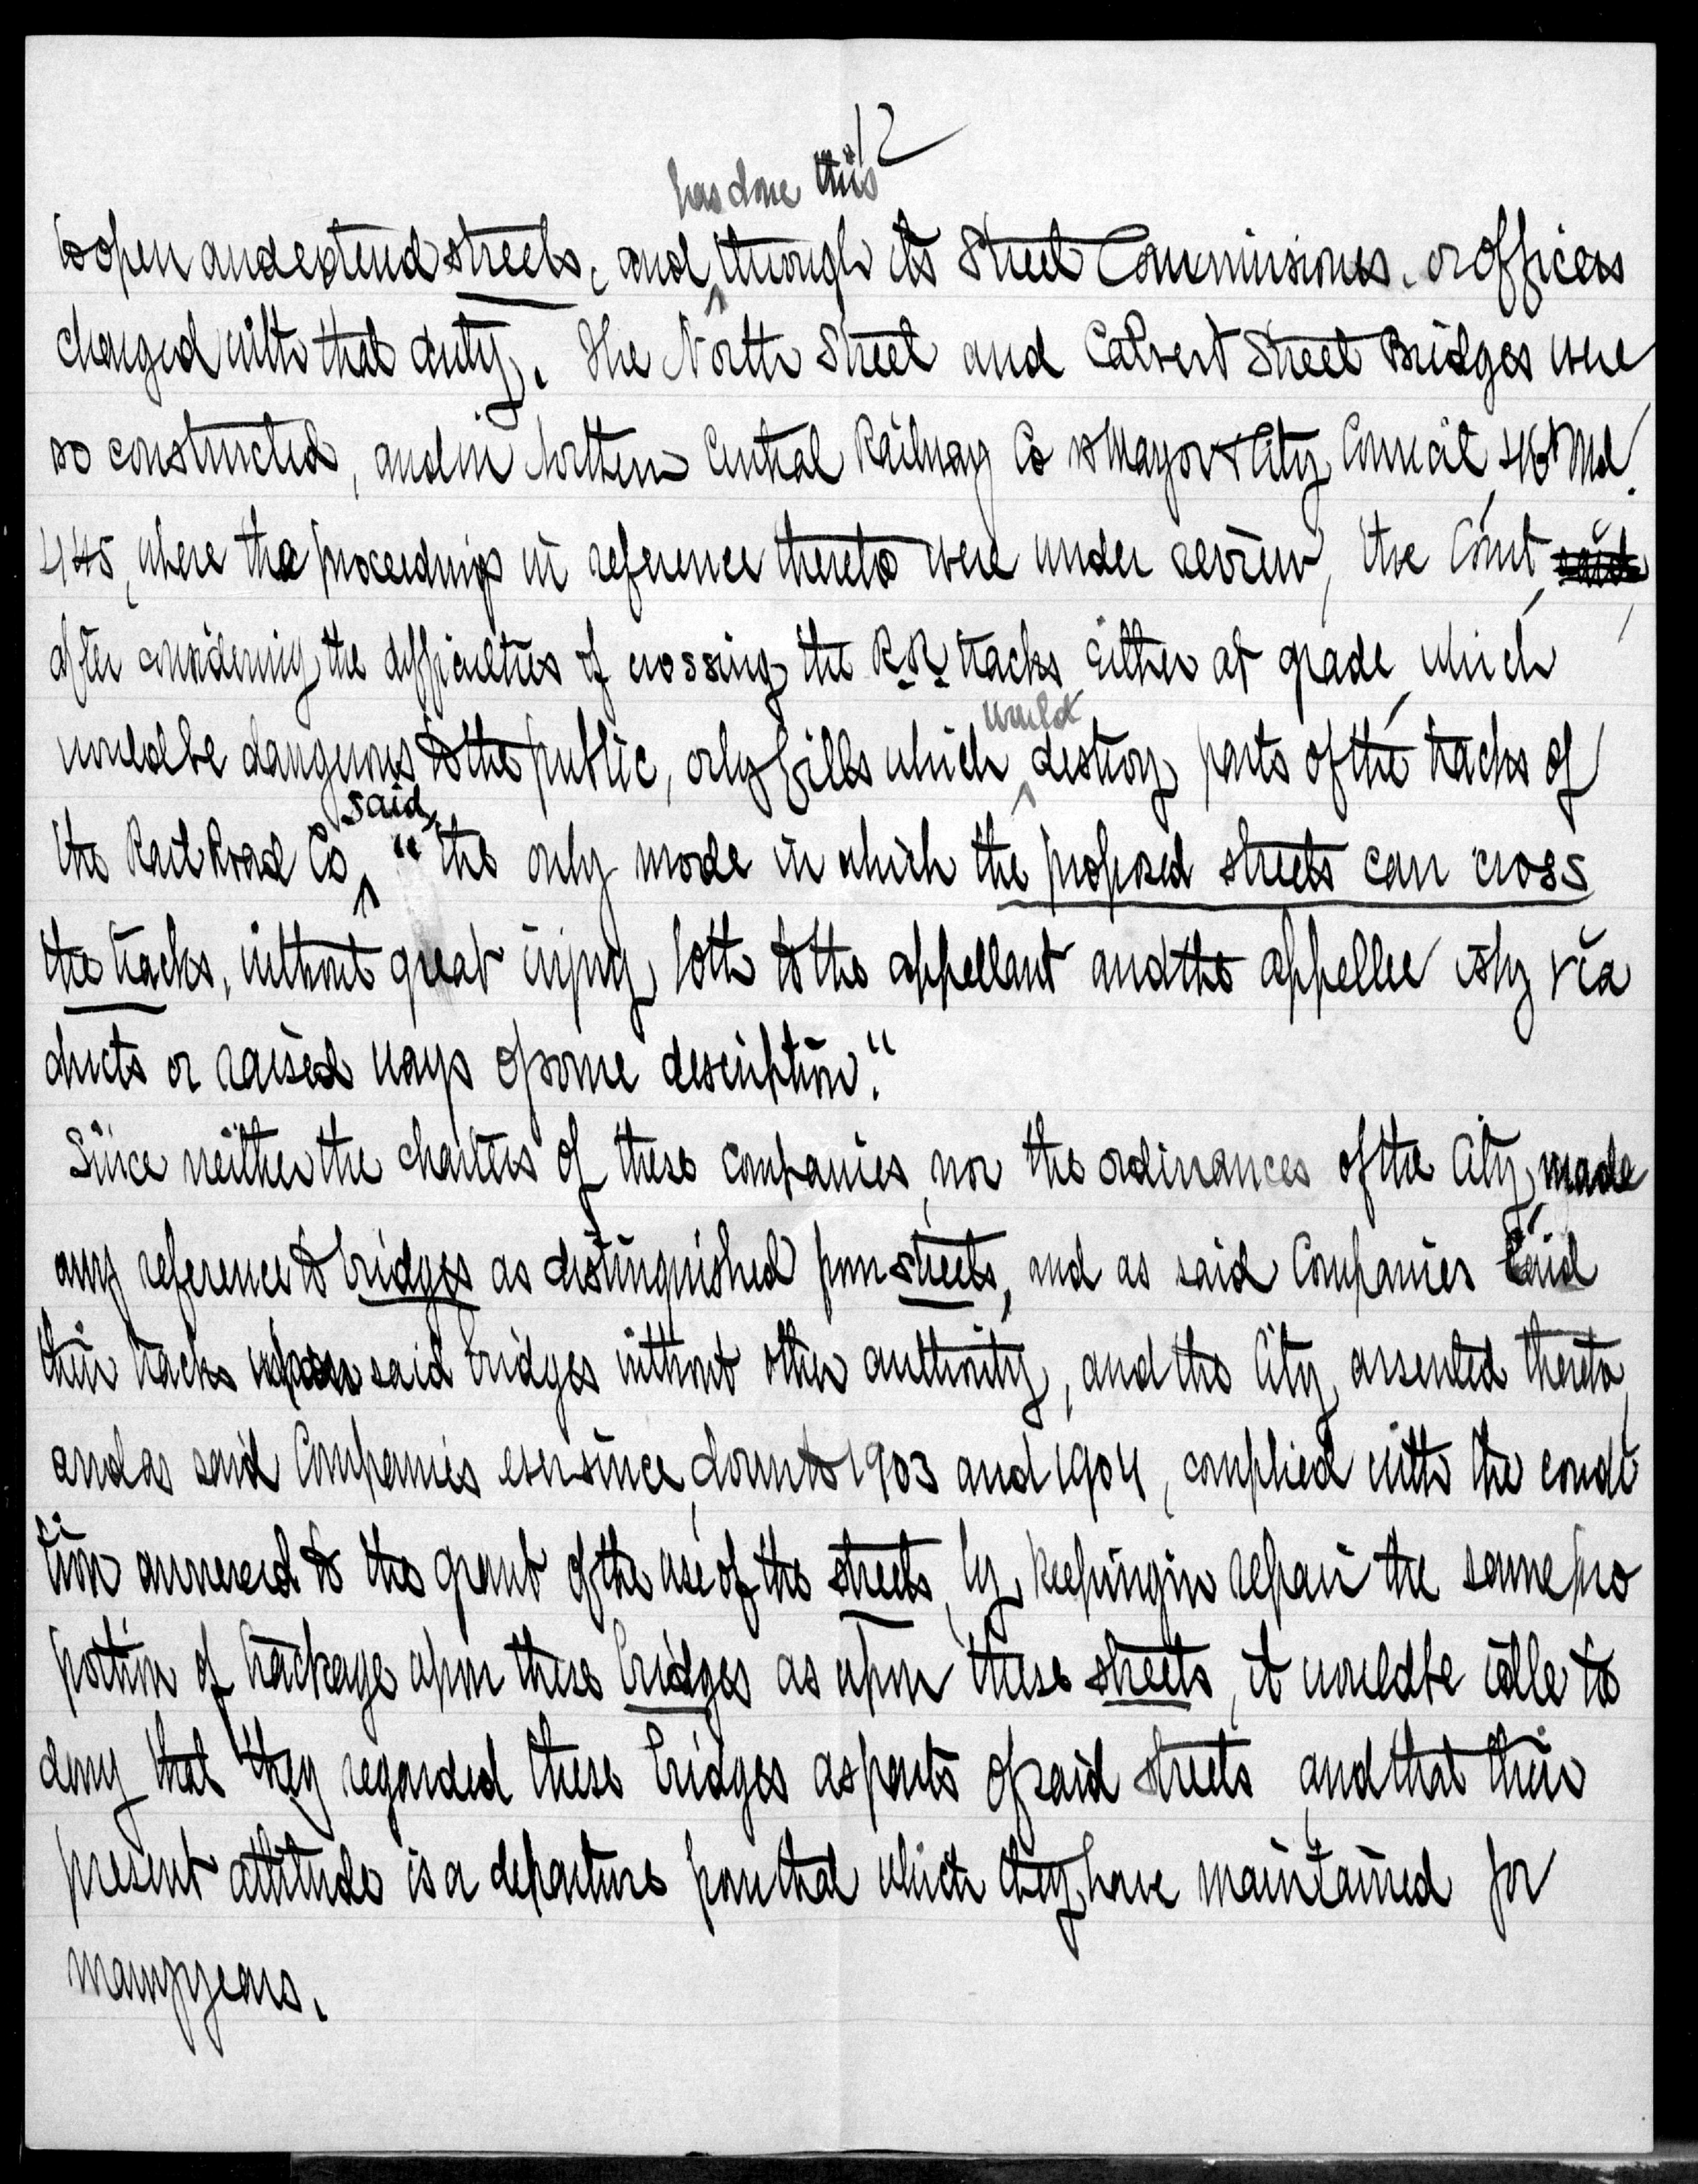 12
has done this
to open and extend streets, and through its Street Commissioners, or officers
charged with that duty. The North Street and Calvert Street Bridges were
so constructed, and in Northern Central Railway Co vs Mayor & City Council, 46 Md.
445, where the proceedings in reference thereto were under review, the Court said
after considering the difficulties of crossing the R.R. tracks either at grade, which
would
would be dangerous to the public, or by fills which destroy parts of the tracks of
said
the Rail Road Co, "the only mode in which the proposed streets can cross
the tracks, without great injury, both to the appellant and the appellee is by via
ducts or raised ways of some description."
Since neither the charters of these companies, nor the ordinances of the City, made
any reference to bridges as distinguished from streets, and as said Companies laid
their tracks upon said bridges without other authority, and the City assented thereto,
and as said Companies ever since, down to 1903 and 1904, complied with the condi
tion annexed to the grant of the use of the streets, by keeping in repair the same pro
portion of trackage upon these bridges as upon these streets, it would be idle to
deny that they regarded these bridges as parts of said streets, and that their
present attitude is a departure from that which they have maintained for
many years.